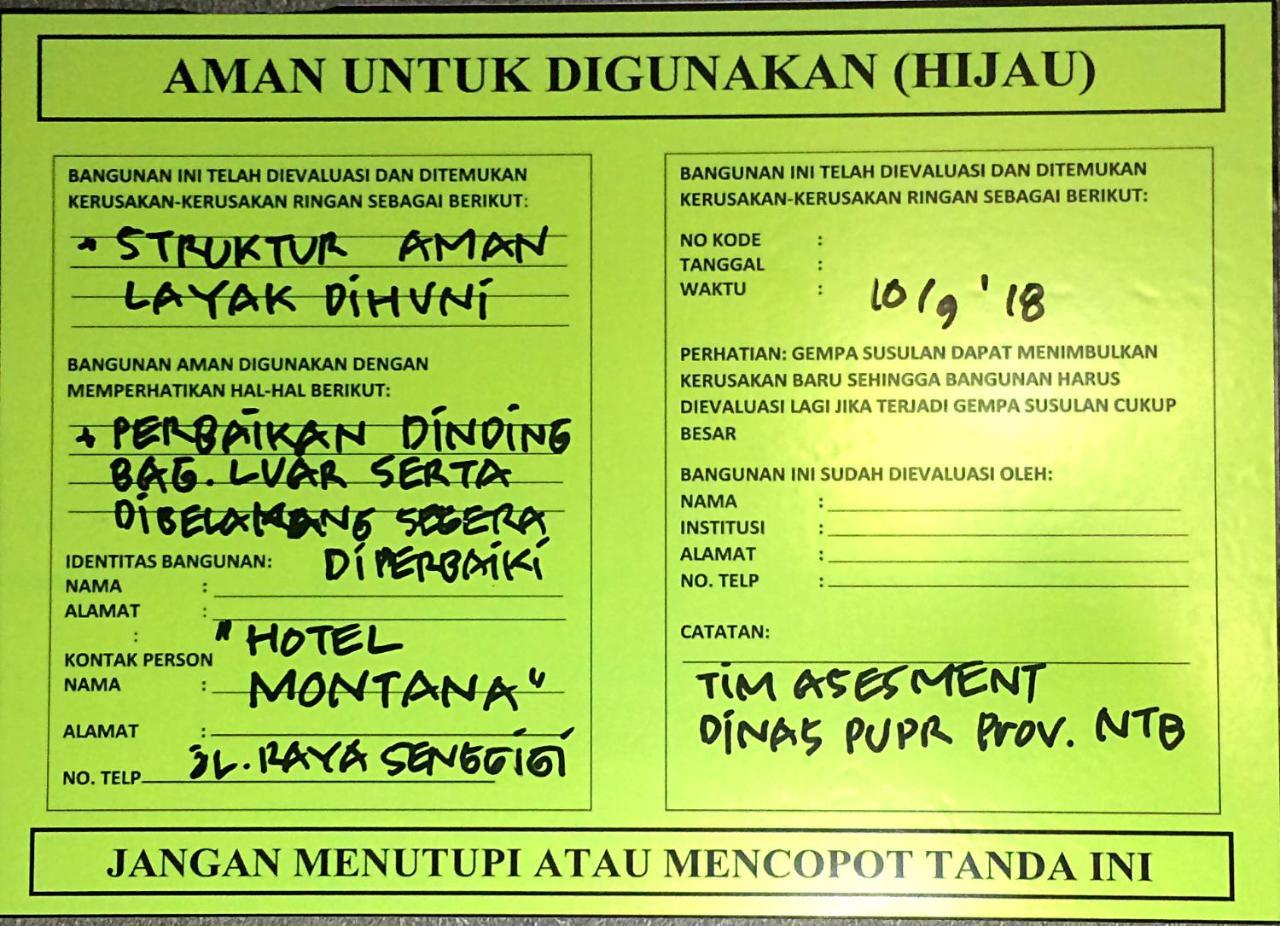 AMAN UNTUK DIGUNAKAN (HIJAU)
BANGUNAN INI TELAH DIEVALUASI DAN DITEMUKAN
KERUSAKAN-KERUSAKAN RINGAN SEBAGAI BERIKUT:
* STRUKTUR AMAN
LAYAK DIHUNI
BANGUNAN AMAN DIGUNAKAN DENGAN
MEMPERHATIKAN HAL-HAL BERIKUT:
* PERBAIKAN DINDING
BAG. LUAR SERTA
DIBELAKANG SEGERA
DIPERBAIKI
IDENTITAS BANGUNAN:
NAMA :
ALAMAT :
:
"HOTEL
KONTAK PERSON
NAMA : MONTANA"
ALAMAT :
JL. RAYA SENGGIGI
NO. TELP
BANGUNAN INI TELAH DIEVALUASI DAN DITEMUKAN
KERUSAKAN-KERUSAKAN RINGAN SEBAGAI BERIKUT:
NO KODE :
TANGGAL :
WAKTU : 10/9 '18
PERHATIAN: GEMPA SUSULAN DAPAT MENIMBULKAN
KERUSAKAN BARU SEHINGGA BANGUNAN HARUS
DIEVALUASI LAGI JIKA TERJADI GEMPA SUSULAN CUKUP
BESAR
BANGUNAN INI SUDAH DIEVALUASI OLEH:
NAMA :
INSTITUSI :
ALAMAT :
NO. TELP :
CATATAN:
TIM ASESMENT
DINAS PUPR PROV. NTB
JANGAN MENUTUPI ATAU MENCOPOT TANDA INI